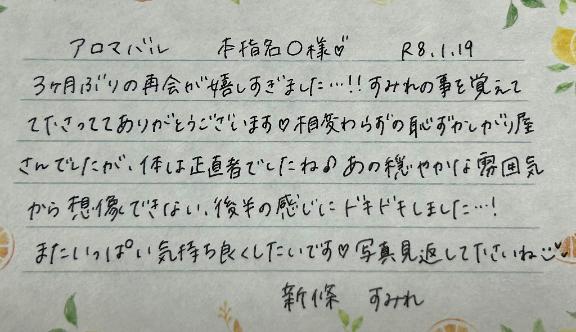 アロマバル 本指名〇様♡ R8.1.19
3ヶ月ぶりの再会が嬉しすぎました…!! すみれの事を覚えて
てださっててありがとうございます♡相変わらずの恥ずかしがり屋
さんでしたが、体は正直者でしたね♪あの穏やかな雰囲気
から想像できない、後半の感じにドキドキしました…!
またいっぱい気持ち良くしたいです♡写真見返してださいね
新條 すみれ